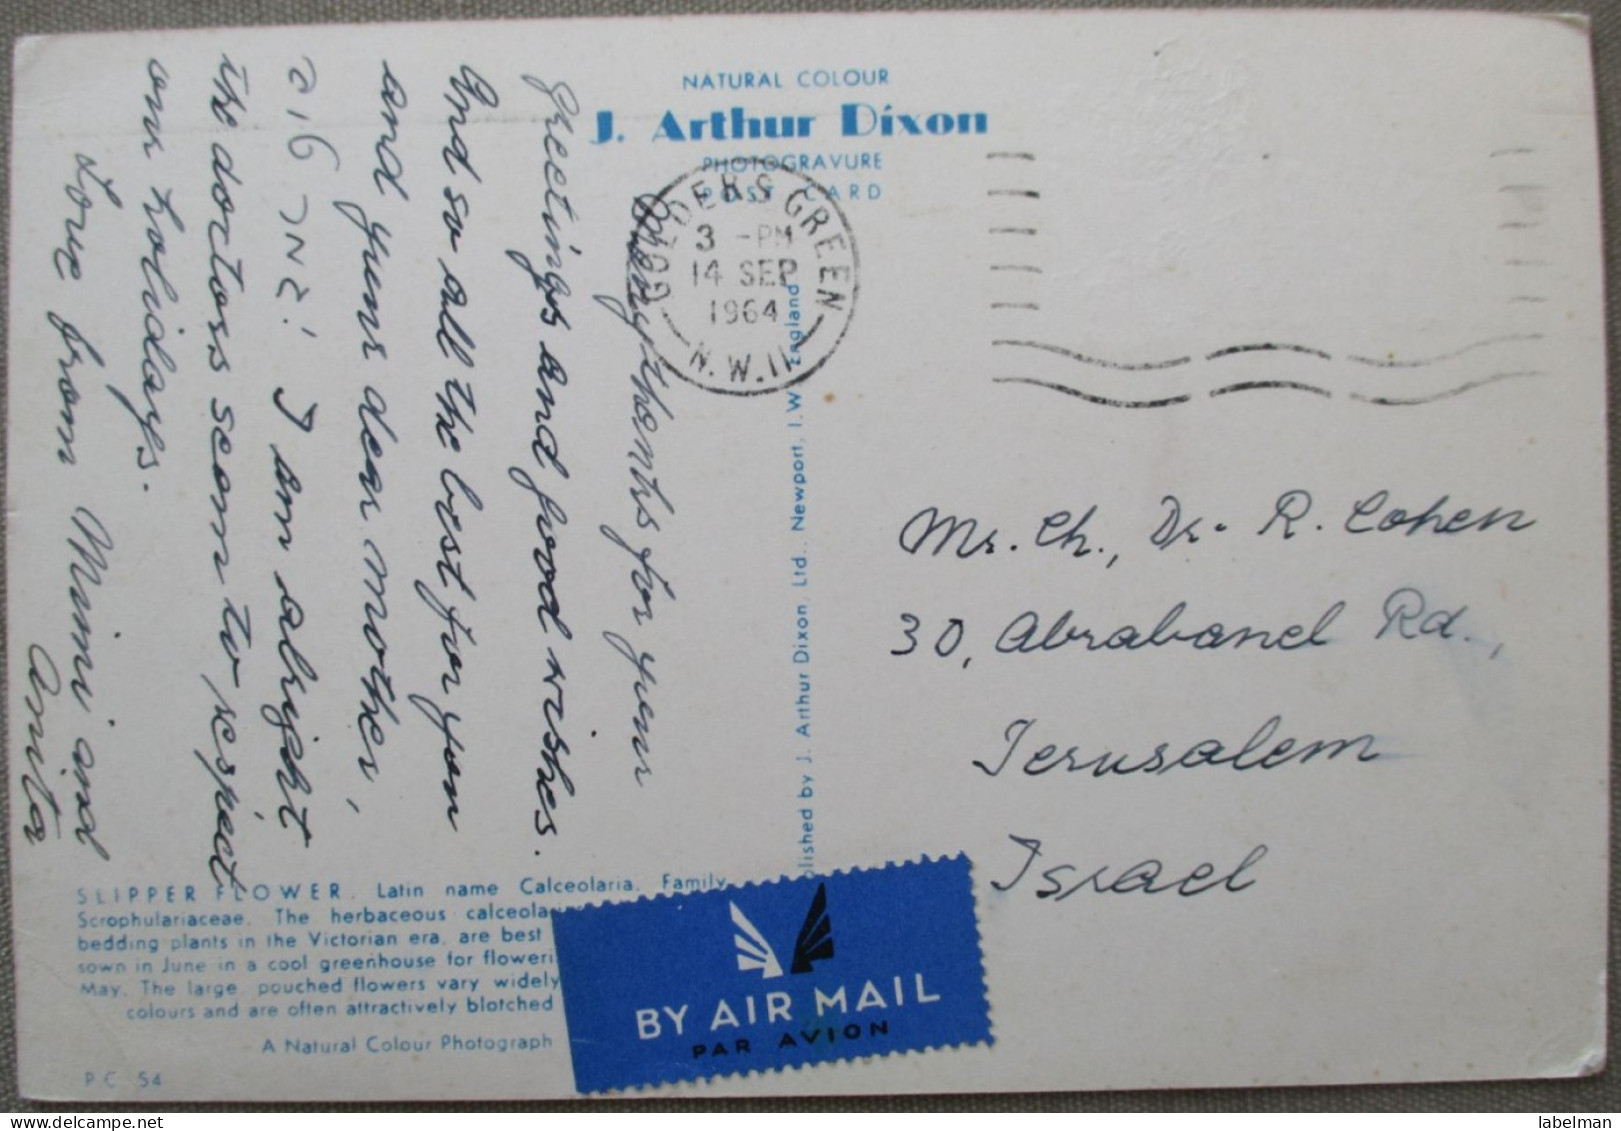 NATURAL COLOUR
J. Arthur Dixon
PHOTOGRAVURE
POST CARD
GOLDERS GREEN
3 - PM
14 SEP
1964
N.W.11
Many thanks for your
greetings and good wishes.
And so all the best for you
and your dear mother,
שנה טובה! I am alright
the doctors seem to respect
our holidays.
Love from Mimi and
Anita
Mr. Ch., Dr. R. Cohen
30, Abrabanel Rd.,
Jerusalem
Israel
Published by J. Arthur Dixon, Ltd., Newport, I.W. England
SLIPPER FLOWER. Latin name Calceolaria. Family
Scrophulariaceae. The herbaceous
bedding plants in the Victorian era, are best
sown in June in a cool greenhouse for
May. The large, pouched flowers vary widely
colours and are often attractively blotched
A Natural Colour Photograph
P.C. 54
BY AIR MAIL
PAR AVION
labelman
delcampe.net